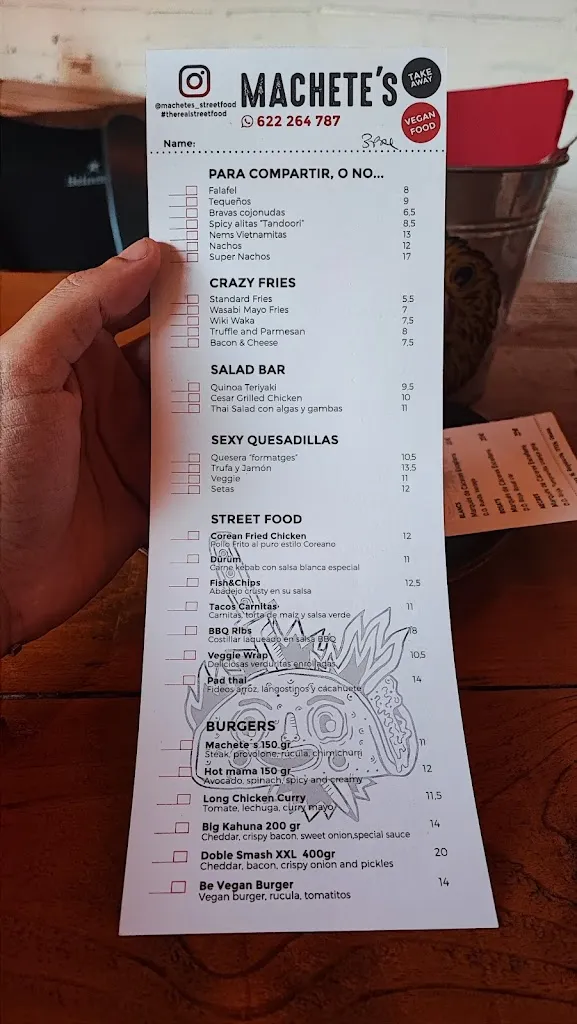 @machetes_streetfood
#therealstreetfood
MACHETE'S
622 264 787
TAKE AWAY
VEGAN FOOD
Name:
PARA COMPARTIR, O NO...
Falafel 8
Tequeños 9
Bravas cojonudas 6,5
Spicy alitas "Tandoori" 8,5
Nems Vietnamitas 13
Nachos 12
Super Nachos 17
CRAZY FRIES
Standard Fries 5,5
Wasabi Mayo Fries 7
Wiki Waka 7,5
Truffle and Parmesan 8
Bacon & Cheese 7,5
SALAD BAR
Quinoa Teriyaki 9,5
Cesar Grilled Chicken 10
Thai Salad con algas y gambas 11
SEXY QUESADILLAS
Quesera "formatges" 10,5
Trufa y Jamón 13,5
Veggie 11
Setas 12
STREET FOOD
Corean Fried Chicken 12
Pollo Frito al puro estilo Coreano
Dürüm 11
Carne kebab con salsa blanca especial
Fish&Chips 12,5
Abadejo crusty en su salsa
Tacos Carnitas 11
Carnitas, torta de maíz y salsa verde
BBQ RIbs 18
Costillar laqueado en salsa BBQ
Veggie Wrap 10,5
Deliciosas verduritas enrolladas
Pad thaI 14
Fideos arroz, langostinos y cacahuete
BURGERS
Machete´s 150 gr 11
Steak, provolone, rúcula, chimichurri
Hot mama 150 gr 12
Avocado, spinach, spicy and creamy
Long Chicken Curry 11,5
Tomate, lechuga, curry mayo
BIg Kahuna 200 gr 14
Cheddar, crispy bacon, sweet onion,special sauce
Doble Smash XXL 400gr 20
Cheddar, bacon, crispy onion and pickles
Be Vegan Burger 14
Vegan burger, rucula, tomatitos